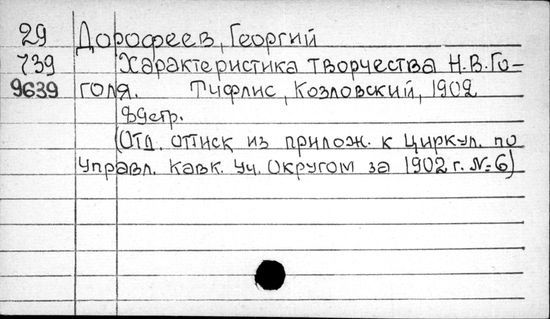 29 Дорофеев, Георгий
739 Характеристика творчества Н.В.Го-
9639 голя. Тифлис, Козловский, 1902
89стр.
(Отд. оттиск из прилож. к Циркул. по
управл. Кавк. Уч. Округом за 1902 г. №6)